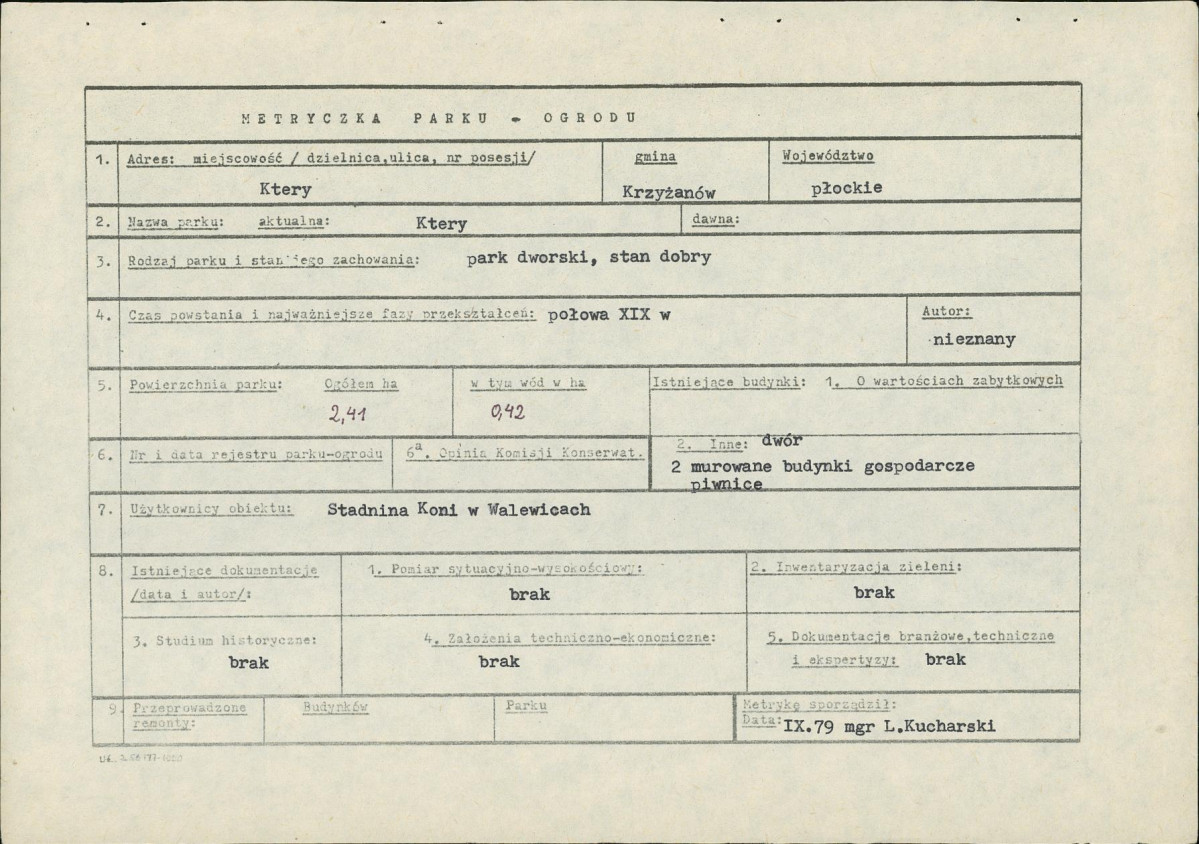 METRYCZKA PARKU - OGRODU
1. Adres: miejscowość / dzielnica, ulica, nr posesji/
Ktery
gmina
Krzyżanów
Województwo
płockie
2. Nazwa parku: aktualna: Ktery
dawna:
3. Rodzaj parku i stan jego zachowania: park dworski, stan dobry
4. Czas powstania i najważniejsze fazy przekształceń: połowa XIX w
Autor:
nieznany
5. Powierzchnia parku: Ogółem ha
2,41
w tym wód w ha
0,42
Istniejące budynki: 1. O wartościach zabytkowych
6. Nr i data rejestru parku-ogrodu
6a. Opinia Komisji Konserwat.
2. Inne: dwór
2 murowane budynki gospodarcze
piwnice
7. Użytkownicy obiektu: Stadnina Koni w Walewicach
8. Istniejące dokumentacje
/data i autor/:
1. Pomiar sytuacyjno-wysokościowy:
brak
2. Inwentaryzacja zieleni:
brak
3. Studium historyczne:
brak
4. Założenia techniczno-ekonomiczne:
brak
5. Dokumentacje branżowe, techniczne
i ekspertyzy: brak
9. Przeprowadzone
remonty:
Budynków
Parku
Metrykę sporządził:
Data: IX.79 mgr L.Kucharski